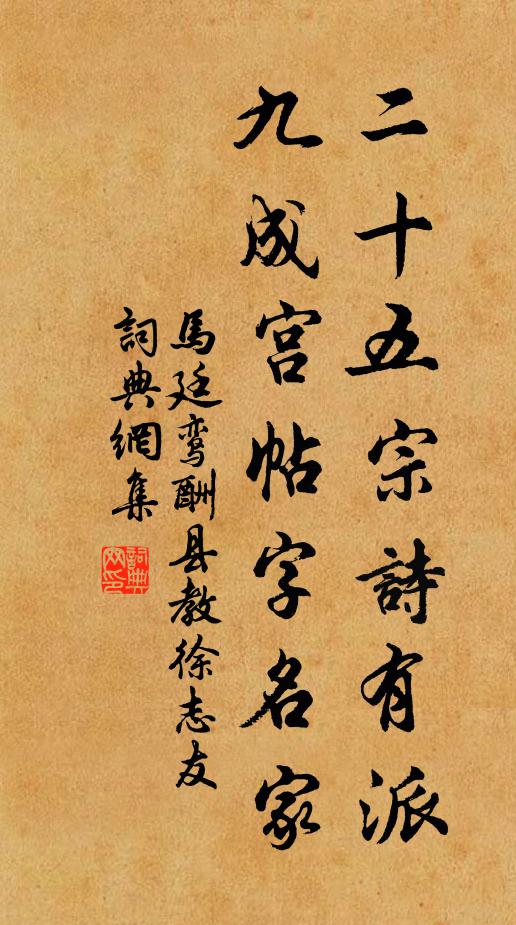 二十五宗詩有派
九成宮帖字名家
馬廷鸞酬县教徐志友
詞典網集
詞典網印